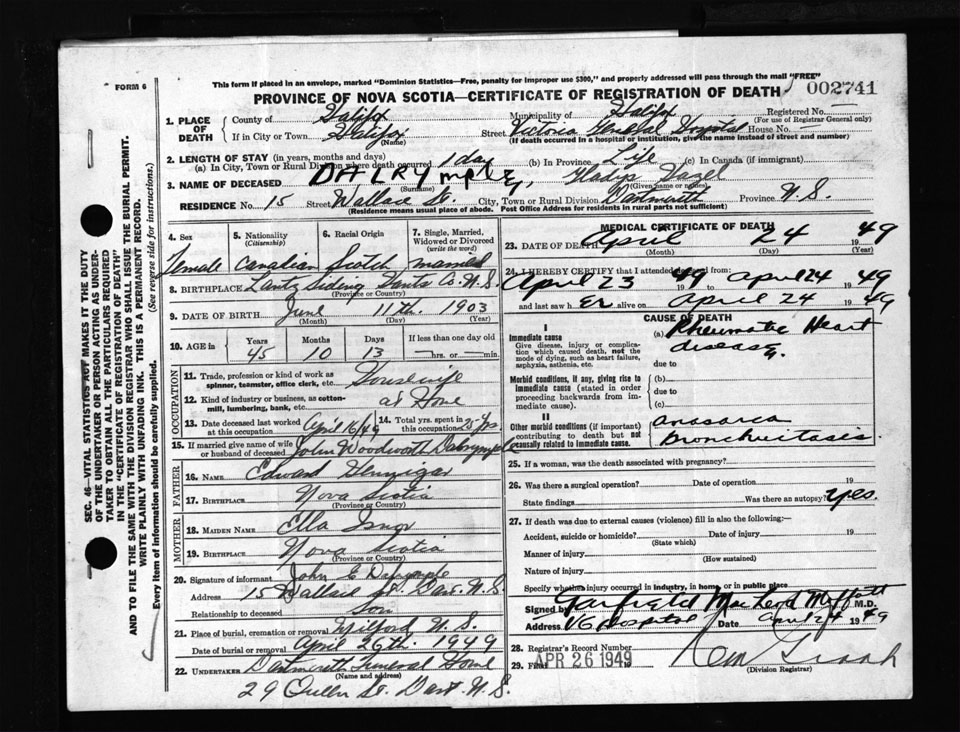 FORM 6
This form if placed in an envelope, marked "Dominion Statistics—Free, penalty for improper use $300," and properly addressed will pass through the mail "FREE"
PROVINCE OF NOVA SCOTIA—CERTIFICATE OF REGISTRATION OF DEATH 002741
1. PLACE OF DEATH County of Halifax Municipality of Halifax Registered No. —
(For use of Registrar General only)
If in City or Town Halifax (Name) Street Victoria General Hospital House No. —
(If death occurred in a hospital or institution, give the name instead of street and number)
2. LENGTH OF STAY (in years, months and days)
(a) In City, Town or Rural Division where death occurred 1 day (b) In Province Life (c) In Canada (if immigrant)
3. NAME OF DECEASED DALRYmple, Gladys Hazel
(Surname) (Given name or names)
RESIDENCE No. 15 Street Wallace St. City, Town or Rural Division Dartmouth Province N.S.
(Residence means usual place of abode. Post Office Address for residents in rural parts not sufficient)
4. Sex Female
5. Nationality (Citizenship) Canadian
6. Racial Origin Scotch
7. Single, Married, Widowed or Divorced (write the word) married
8. BIRTHPLACE Lantz Siding Hants Co. N.S.
(Province or Country)
9. DATE OF BIRTH June 11th. 1903
(Month) (Day) (Year)
10. AGE in Years Months Days If less than one day
45 10 13 —hrs. or —min.
OCCUPATION
11. Trade, profession or kind of work as spinner, teamster, office clerk, etc. Housewife
12. Kind of industry or business, as cotton-mill, lumbering, bank, etc. at Home
13. Date deceased last worked at this occupation April 16/49
14. Total yrs. spent in this occupation 25 yrs.
15. If married give name of wife or husband of deceased John Woodworth Dalrymple
FATHER
16. Name Edward Hennigar
17. Birthplace Nova Scotia
MOTHER
18. MAIDEN NAME Ella Isnor
19. BIRTHPLACE Nova Scotia
(Province or Country)
20. Signature of informant John E Dalrymple
Address 15 Wallace St. Dart. N.S.
Relationship to deceased Son
21. Place of burial, cremation or removal Milford N.S.
Date of burial or removal April 26th. 1949
22. UNDERTAKER Dartmouth Funeral Home
(Name and address)
29 Queen St. Dart. N.S.
MEDICAL CERTIFICATE OF DEATH
23. DATE OF DEATH April 24 1949
(Month) (Day) (Year)
24. I HEREBY CERTIFY that I attended deceased from:
April 23 1949 to April 24 1949
and last saw her alive on April 24 1949
CAUSE OF DEATH
I
Immediate cause
Give disease, injury or complication which caused death, not the mode of dying, such as heart failure, asphyxia, asthenia, etc.
(a) Rheumatic Heart disease.
due to
Morbid conditions, if any, giving rise to immediate cause (stated in order proceeding backwards from immediate cause).
(b)
due to
(c)
II
Other morbid conditions (if important) contributing to death but not causally related to immediate cause.
anasarca
25. If a woman, was the death associated with pregnancy?
26. Was there a surgical operation? Date of operation 19
State findings Was there an autopsy? yes.
27. If death was due to external causes (violence) fill in also the following:—
Accident, suicide or homicide? Date of injury 19
(State which)
Manner of injury
(How sustained)
Nature of injury
Specify whether injury occurred in industry, in home or in public place
Signed by Garfield MacLeod Moffatt M.D.
Address VG Hospital Date Apr 24 1949
28. Registrar's Record Number
29. Filed APR 26 1949
(Division Registrar)
SEC. 46—VITAL STATISTICS ACT MAKES IT THE DUTY
OF THE UNDERTAKER OR PERSON ACTING AS UNDER-
TAKER TO OBTAIN ALL THE PARTICULARS REQUIRED
IN THE "CERTIFICATE OF REGISTRATION OF DEATH"
AND TO FILE THE SAME WITH THE DIVISION REGISTRAR WHO SHALL ISSUE THE BURIAL PERMIT.
WRITE PLAINLY WITH UNFADING INK. THIS IS A PERMANENT RECORD.
Every item of Information should be carefully supplied. (See reverse side for instructions.)